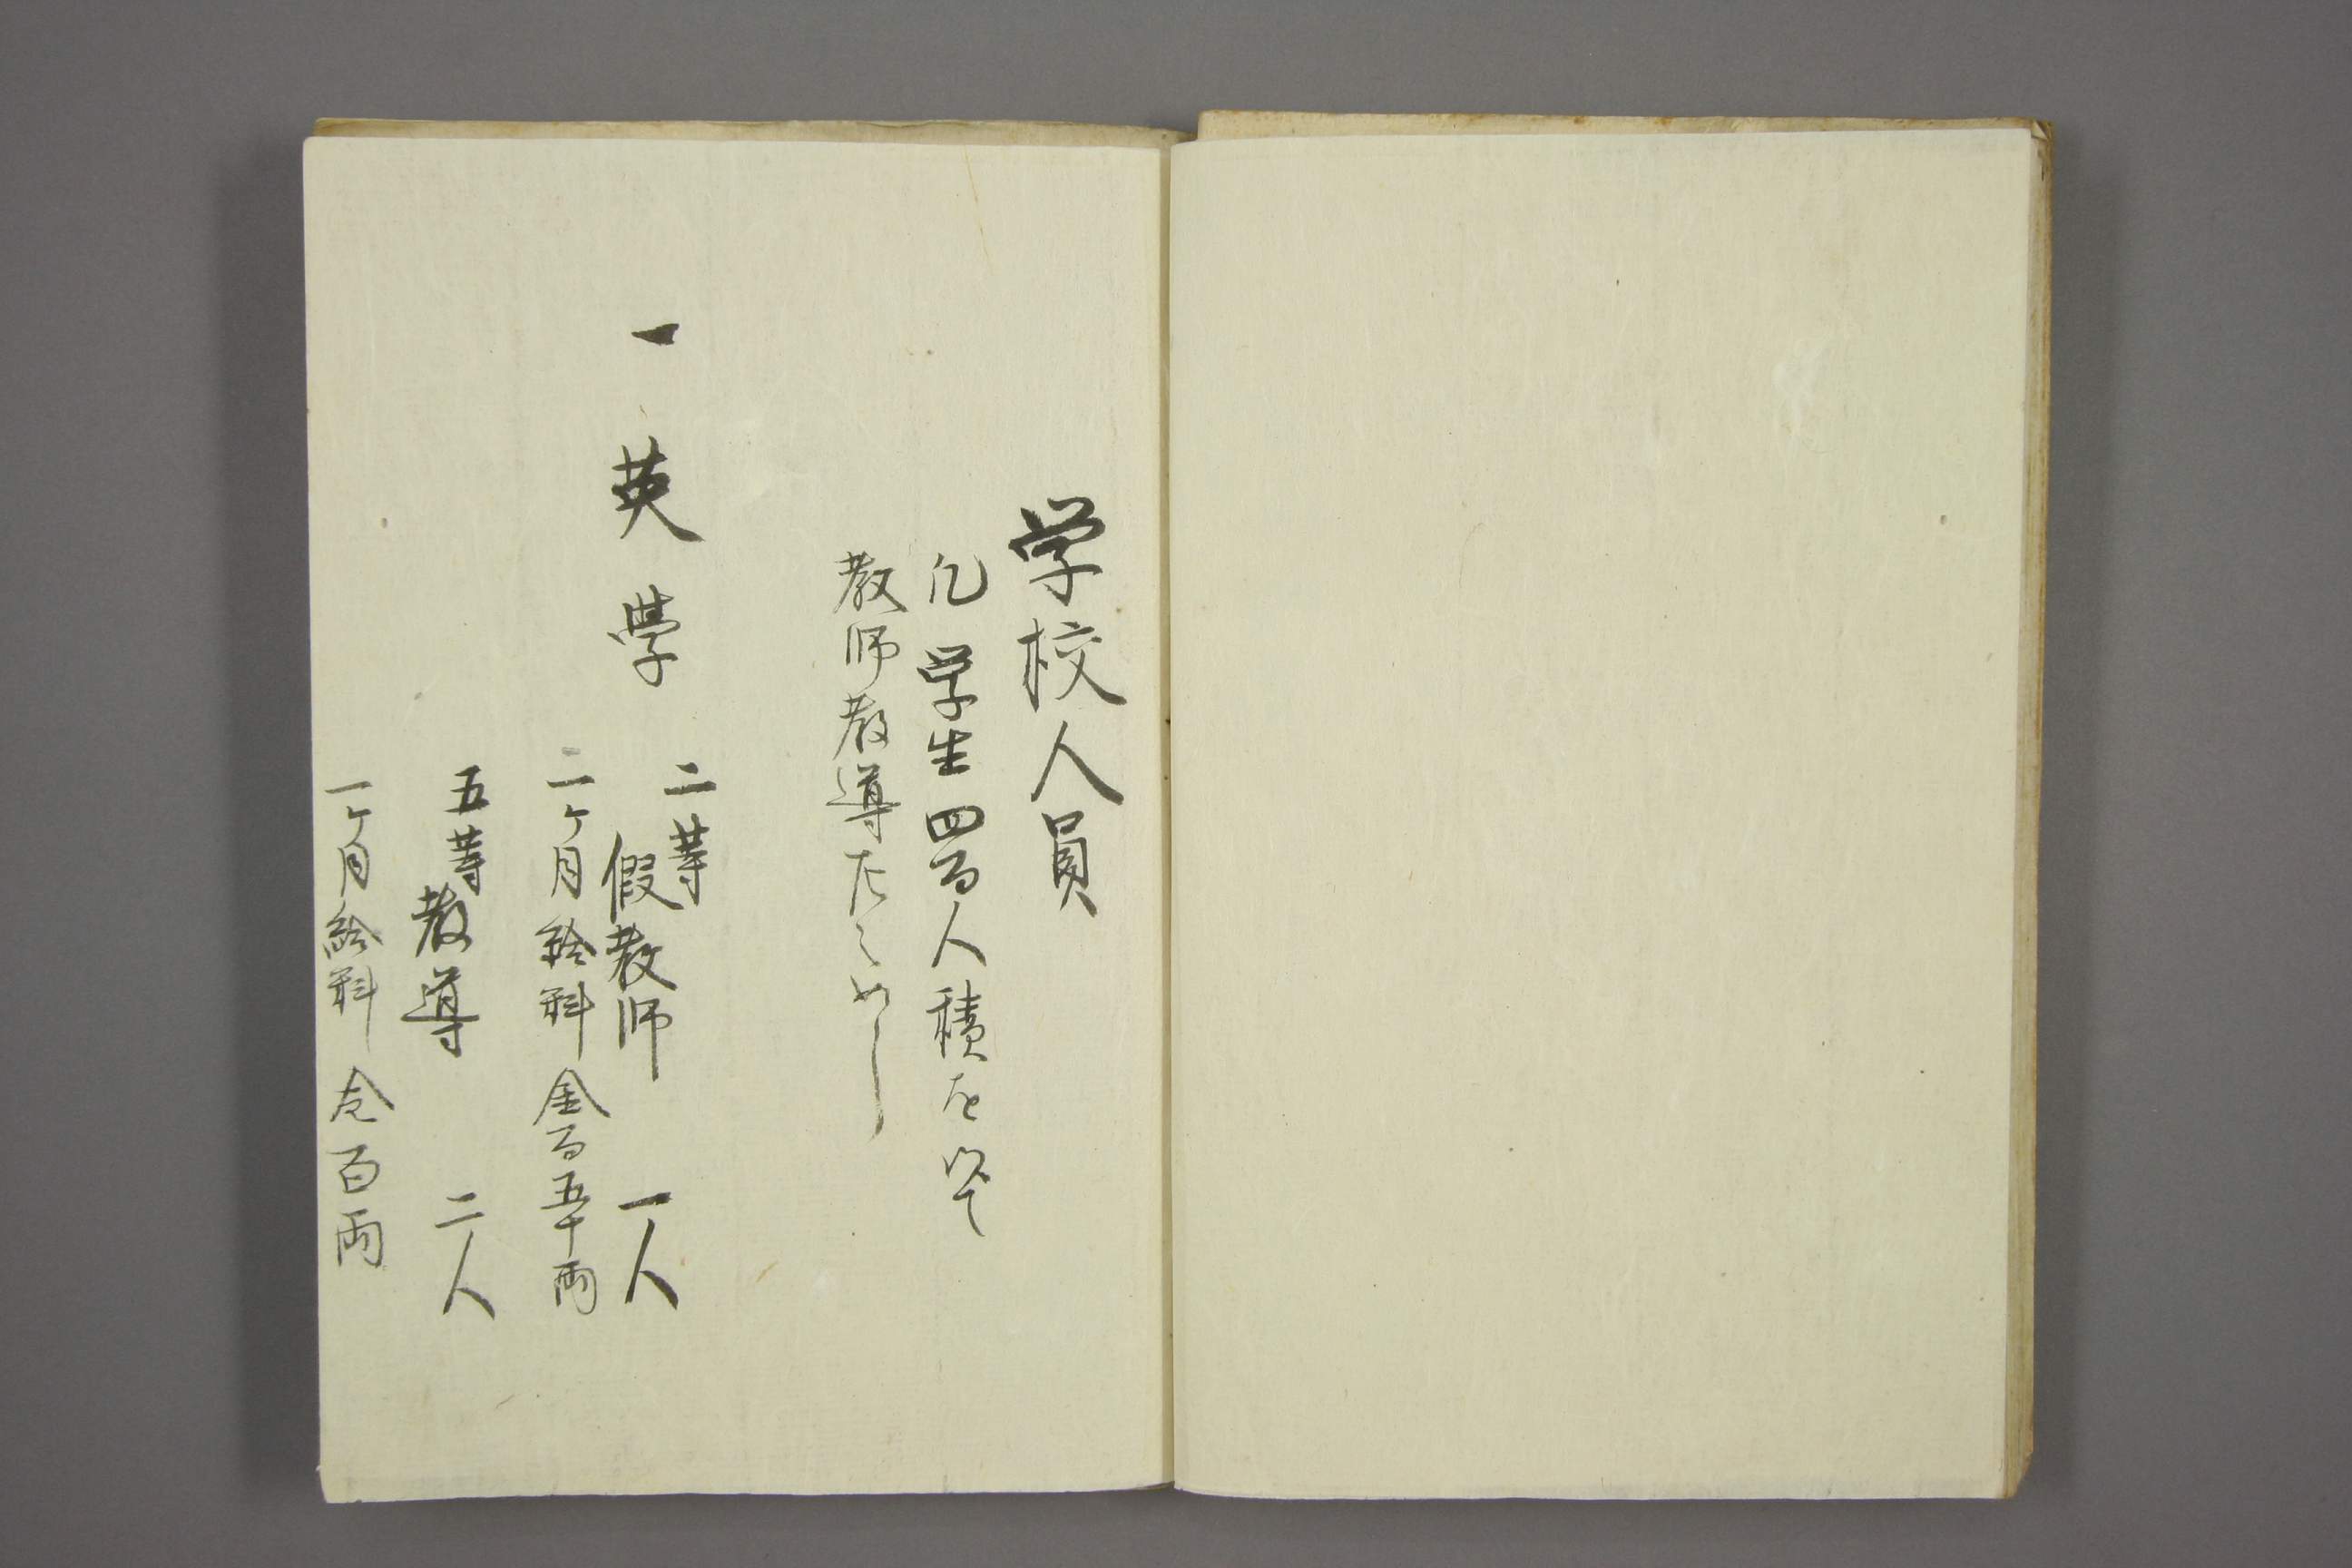 学校人員
凡学生四百人積を以て
教師教導左之如し
一 英學 二等假教師 一人
二ヶ月給料金百五十両
五等教導 二人
一ヶ月給料金百両